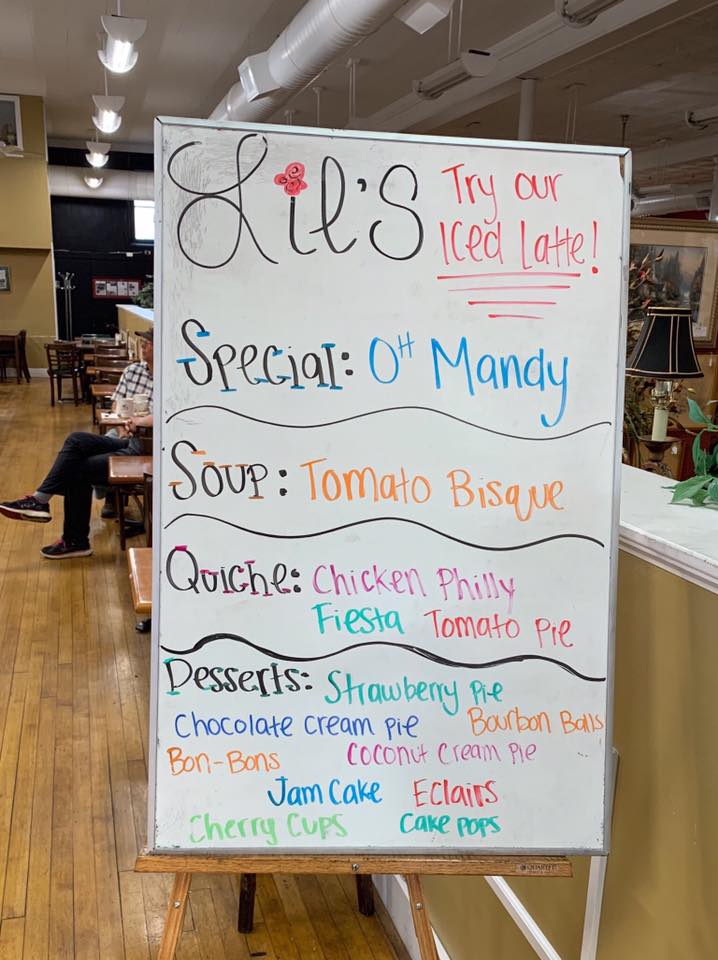 Lil's
Try our
Iced Latte!
Special: Oh Mandy
Soup: Tomato Bisque
Quiche: Chicken Philly
Fiesta Tomato Pie
Desserts: Strawberry Pie
Chocolate Cream Pie Bourbon Balls
Bon-Bons Coconut Cream Pie
Jam Cake Eclairs
Cherry Cups Cake Pops
QUARTET